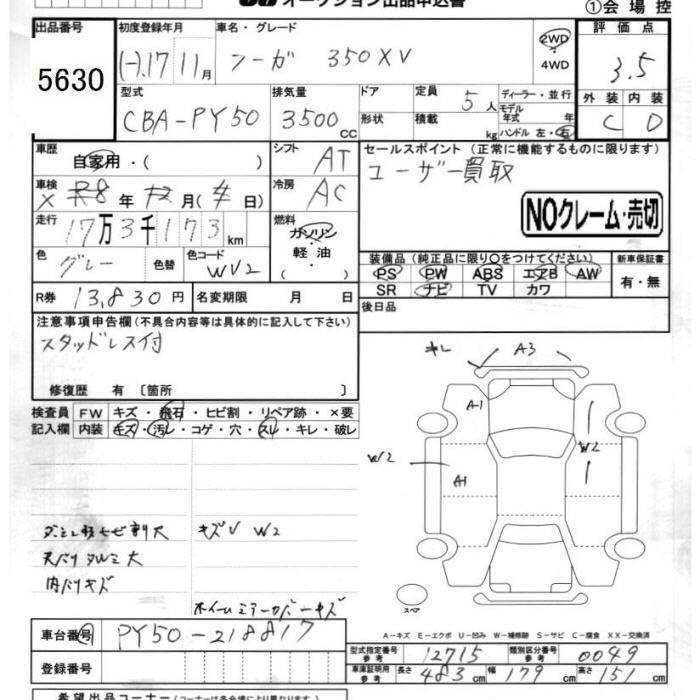 オークション出品申込書
①会場控
出品番号
5630
初度登録年月
(-).17 11月
車名・グレード
フーガ 350XV
2WD
・
4WD
評価点
3.5
外装 内装
C D
型式
CBA-PY50
排気量
3500cc
ドア
形状
定員 5人
積載 kg
ディーラー・並行
モデル
年式 年
ハンドル 左・右
車歴
自家用・( )
シフト
AT
セールスポイント (正常に機能するものに限ります)
ユーザー買取
NOクレーム・売切
車検
冷房
AC
走行
17万3千173km
燃料
ガソリン
軽油
・( )
色
グレー
色替
色コード
WV2
装備品 (純正品に限り○をつけてください)
PS PW ABS エアB AW
SR ナビ TV カワ
新車保証書
有・無
R券 13,830円
名変期限 月 日
後日品
注意事項申告欄 (不具合内容等は具体的に記入して下さい)
スタッドレス付
修復歴 有 〔箇所 〕
検査員
記入欄
FW キズ・飛石・ヒビ割・リペア跡・×要
内装 キズ・汚レ・コゲ・穴・スレ・キレ・破レ
キレ A3
A-1
W2
W2
A1
スペア
キズV W2
天バリ タルミ 大
内バリキズ
ホイールミラーカバーキズ
A-キズ E-エクボ U-凹み W-補修跡 S-サビ C-腐食 XX-交換済
車台番号 PY50-218817
登録番号
型式指定番号
参考
12715
類別区分番号
参考
0049
車庫証明用
参考
長さ 483cm 幅 179cm 高さ 151cm
希望出品コーナー